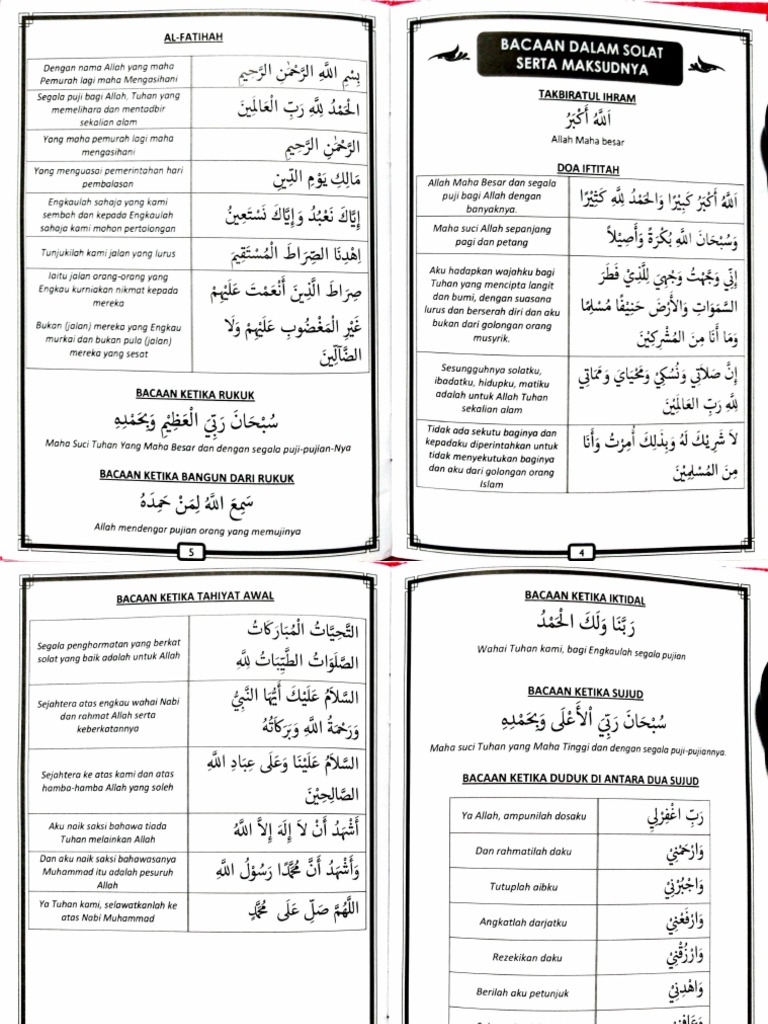 BACAAN DALAM SOLAT
SERTA MAKSUDNYA
TAKBIRATUL IHRAM
اَللَّهُ أَكْبَرُ
Allah Maha besar
DOA IFTITAH
Allah Maha Besar dan segala
puji bagi Allah dengan
banyaknya.
اَللَّهُ أَكْبَرُ كَبِيْرًا وَالْحَمْدُ لِلَّهِ كَثِيْرًا
Maha suci Allah sepanjang
pagi dan petang
وَسُبْحَانَ اللَّهِ بُكْرَةً وَأَصِيْلاً
Aku hadapkan wajahku bagi
Tuhan yang mencipta langit
dan bumi, dengan suasana
lurus dan berserah diri dan aku
bukan dari golongan orang
musyrik.
إِنِّي وَجَّهْتُ وَجْهِيَ لِلَّذِيْ فَطَرَ
السَّمَوَاتِ وَالأَرْضَ حَنِيْفًا مُسْلِمًا
وَمَا أَنَا مِنَ الْمُشْرِكِيْنَ
Sesungguhnya solatku,
ibadatku, hidupku, matiku
adalah untuk Allah Tuhan
sekalian alam
إِنَّ صَلَاتِي وَنُسُكِيْ وَمَحْيَايَ وَمَمَاتِي
لِلَّهِ رَبِّ الْعَالَمِيْنَ
Tidak ada sekutu baginya dan
kepadaku diperintahkan untuk
tidak menyekutukan baginya
dan aku dari golongan orang
Islam
لاَ شَرِيْكَ لَهُ وَبِذَلِكَ أُمِرْتُ وَأَنَا
مِنَ الْمُسْلِمِيْنَ
4
AL-FATIHAH
Dengan nama Allah yang maha
Pemurah lagi maha Mengasihani
بِسْمِ اللَّهِ الرَّحْمَٰنِ الرَّحِيمِ
Segala puji bagi Allah, Tuhan yang
memelihara dan mentadbir
sekalian alam
الْحَمْدُ لِلَّهِ رَبِّ الْعَالَمِينَ
Yang maha pemurah lagi maha
mengasihani
الرَّحْمَٰنِ الرَّحِيمِ
Yang menguasai pemerintahan hari
pembalasan
مَالِكِ يَوْمِ الدِّينِ
Engkaulah sahaja yang kami
sembah dan kepada Engkaulah
sahaja kami mohon pertolongan
إِيَّاكَ نَعْبُدُ وَإِيَّاكَ نَسْتَعِينُ
Tunjukilah kami jalan yang lurus
اِهْدِنَا الصِّرَاطَ الْمُسْتَقِيمَ
Iaitu jalan orang-orang yang
Engkau kurniakan nikmat kepada
mereka
صِرَاطَ الَّذِينَ أَنْعَمْتَ عَلَيْهِمْ
Bukan (jalan) mereka yang Engkau
murkai dan bukan pula (jalan)
mereka yang sesat
غَيْرِ الْمَغْضُوبِ عَلَيْهِمْ وَلَا
الضَّآلِّينَ
BACAAN KETIKA RUKUK
سُبْحَانَ رَبِّيَ الْعَظِيْمِ وَبِحَمْدِهِ
Maha Suci Tuhan Yang Maha Besar dan dengan segala puji-pujian-Nya
BACAAN KETIKA BANGUN DARI RUKUK
سَمِعَ اللَّهُ لِمَنْ حَمِدَهُ
Allah mendengar pujian orang yang memujinya
5
BACAAN KETIKA IKTIDAL
رَبَّنَا وَلَكَ الْحَمْدُ
Wahai Tuhan kami, bagi Engkaulah segala pujian
BACAAN KETIKA SUJUD
سُبْحَانَ رَبِّيَ اْلأَعْلَى وَبِحَمْدِهِ
Maha suci Tuhan yang Maha Tinggi dan dengan segala puji-pujiannya.
BACAAN KETIKA DUDUK DI ANTARA DUA SUJUD
Ya Allah, ampunilah dosaku
رَبِّ اغْفِرْلِي
Dan rahmatilah daku
وَارْحَمْنِيْ
Tutuplah aibku
وَاجْبُرْنِيْ
Angkatlah darjatku
وَارْفَعْنِيْ
Rezekikan daku
وَارْزُقْنِيْ
Berilah aku petunjuk
وَاهْدِنِيْ
BACAAN KETIKA TAHIYAT AWAL
Segala penghormatan yang berkat
solat yang baik adalah untuk Allah
التَّحِيَّاتُ الْمُبَارَكَاتُ
الصَّلَوَاتُ الطَّيِّبَاتُ لِلَّهِ
Sejahtera atas engkau wahai Nabi
dan rahmat Allah serta
keberkatannya
السَّلاَمُ عَلَيْكَ أَيُّهَا النَّبِيُّ
وَرَحْمَةُ اللَّهِ وَبَرَكَاتُهُ
Sejahtera ke atas kami dan atas
hamba-hamba Allah yang soleh
السَّلاَمُ عَلَيْنَا وَعَلَى عِبَادِ اللَّهِ
الصَّالِحِيْنَ
Aku naik saksi bahawa tiada
Tuhan melainkan Allah
أَشْهَدُ أَنْ لاَ إِلَهَ إِلاَّ اللَّهُ
Dan aku naik saksi bahawasanya
Muhammad itu adalah pesuruh
Allah
وَأَشْهَدُ أَنَّ مُحَمَّدًا رَسُوْلُ اللَّهِ
Ya Tuhan kami, selawatkanlah ke
atas Nabi Muhammad
اللَّهُمَّ صَلِّ عَلَى مُحَمَّدٍ